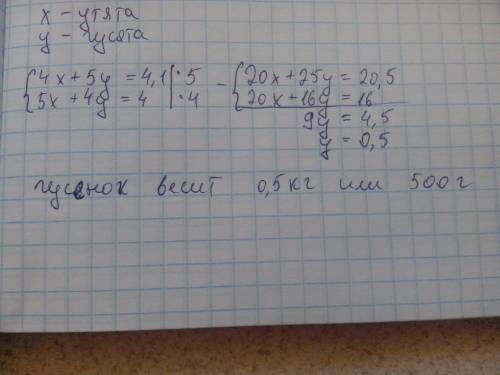 x - утята
y - гусята
{4x+5y = 4,1 | · 5 - {20x+25y = 20,5
{5x+4y = 4 | · 4 {20x+16y = 16
9y = 4,5
y = 0,5
гусёнок весит 0,5 кг или 500 г